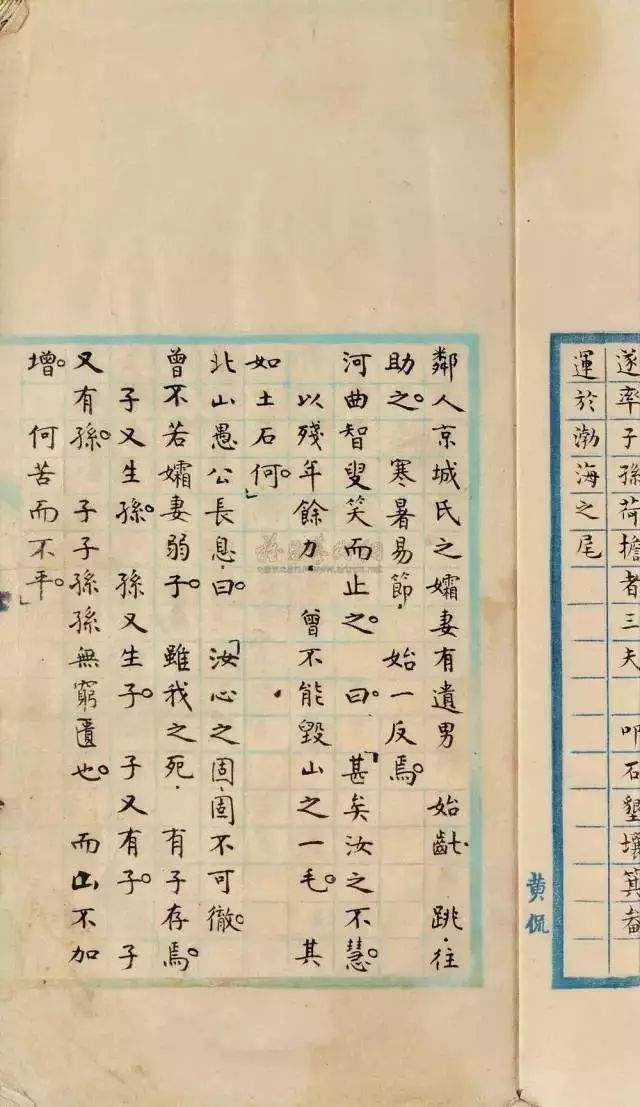 遂率子孫荷擔者三夫 叩石墾壤箕畚
運於渤海之尾
黄侃
鄰人京城氏之孀妻有遺男 始齔 跳·往
助之。 寒暑易節· 始一反焉。
河曲智叟笑而止之。 曰。「甚矣汝之不慧。
以殘年餘力· 曾不能毀山之一毛。 其
如土石何。」
北山愚公長息·曰。「汝心之固·固不可徹。
曾不若孀妻弱子。 雖我之死· 有子存焉。
子又生孫。 孫又生子。 子又有子。 子
又有孫。 子子孫孫無窮匱也。 而山不加
增。 何苦而不平。」